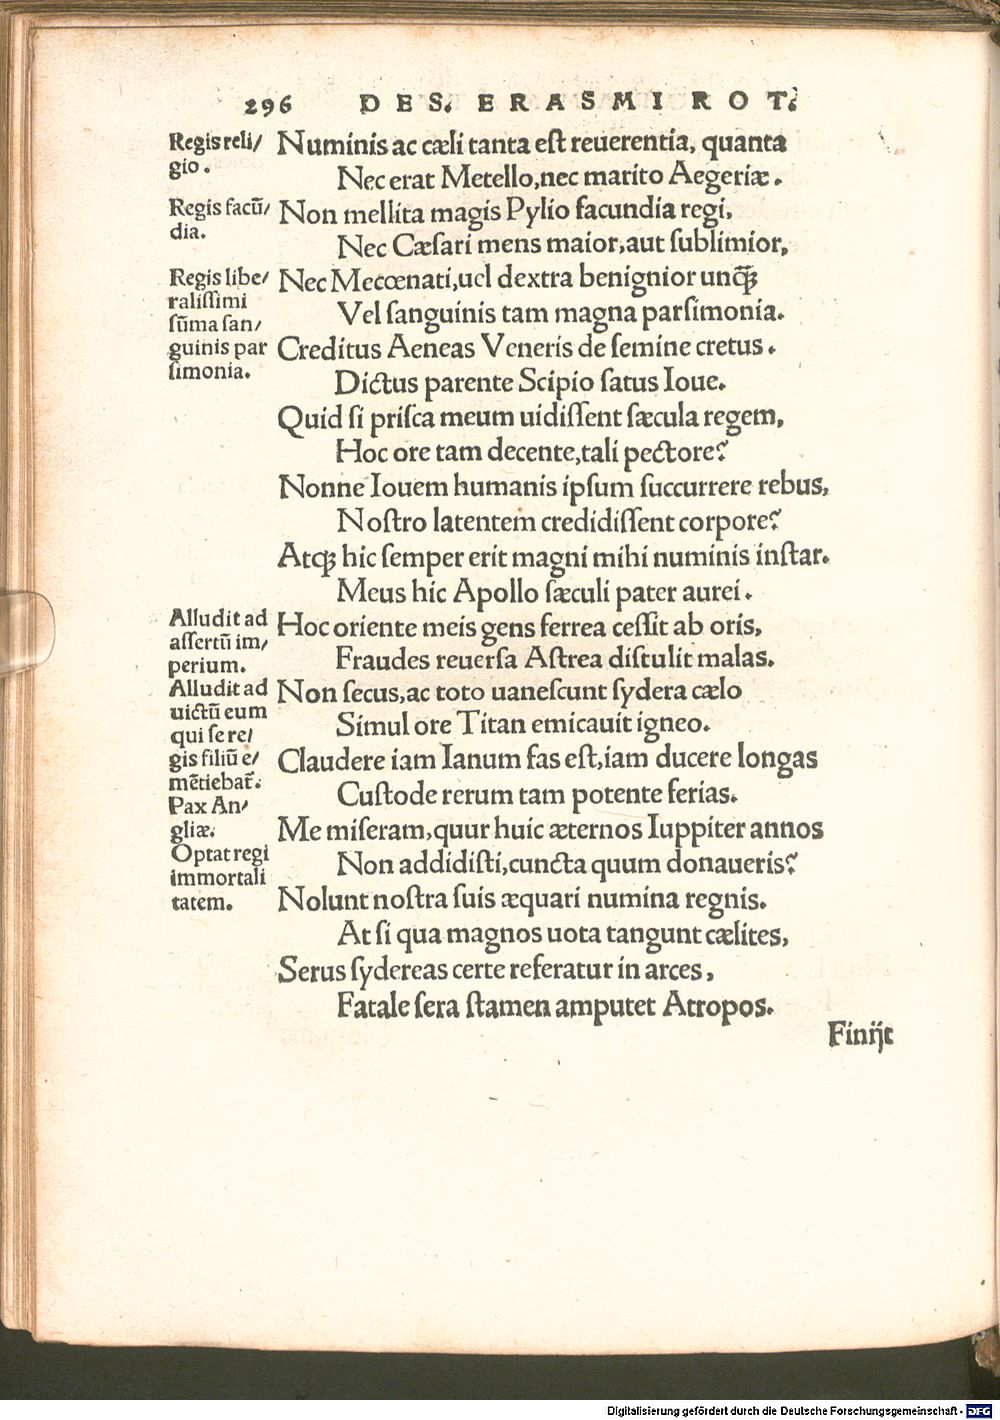 296 DES. ERASMI ROT.
Regis reli/
gio.
Numinis ac cæli tanta est reuerentia, quanta
Nec erat Metello, nec marito Aegeriæ.
Regis facũ/
dia.
Non mellita magis Pylio facundia regi,
Nec Cæsari mens maior, aut sublimior,
Regis libe/
ralissimi
sũma san/
guinis par
simonia.
Nec Mecœnati, uel dextra benignior unq̃ꝫ
Vel sanguinis tam magna parsimonia.
Creditus Aeneas Veneris de semine cretus.
Dictus parente Scipio satus Ioue.
Quid si prisca meum uidissent sæcula regem,
Hoc ore tam decente, tali pectore?
Nonne Iouem humanis ipsum succurrere rebus,
Nostro latentem credidissent corpore?
Atqꝫ hic semper erit magni mihi numinis instar.
Meus hic Apollo sæculi pater aurei.
Alludit ad
assertũ im/
perium.
Hoc oriente meis gens ferrea cessit ab oris,
Fraudes reuersa Astrea distulit malas.
Alludit ad
uictũ eum
qui se re/
gis filiũ e/
mẽtiebat̃.
Non secus, ac toto uanescunt sydera cælo
Simul ore Titan emicauit igneo.
Pax An/
gliæ.
Claudere iam Ianum fas est, iam ducere longas
Custode rerum tam potente ferias.
Optat regi
immortali
tatem.
Me miseram, quur huic æternos Iuppiter annos
Non addidisti, cuncta quum donaueris?
Nolunt nostra suis æquari numina regnis.
At si qua magnos uota tangunt cælites,
Serus sydereas certe referatur in arces,
Fatale sera stamen amputet Atropos.
Finijt
Digitalisierung gefördert durch die Deutsche Forschungsgemeinschaft - DFG